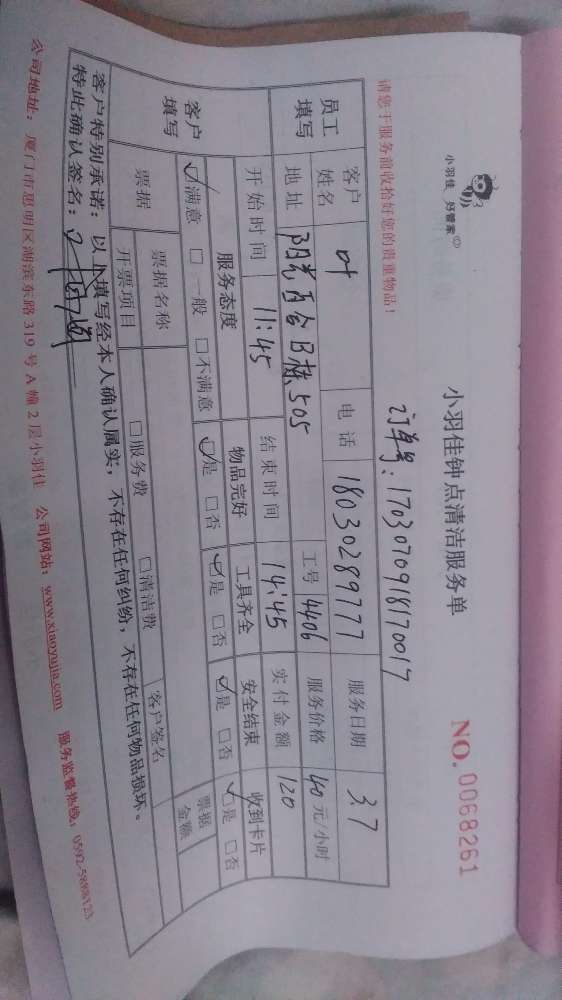 小羽佳 好管家
小羽佳钟点清洁服务单
NO.0068261
订单号:1703070918170017
请您于服务前收拾好您的贵重物品!
员工填写 客户姓名 叶 电话 18030289777 服务日期 3.7
地址 阳光百合B栋505 工号 4406 服务价格 40元/小时
开始时间 11:45 结束时间 14:45 实付金额 120
客户填写 服务态度 物品完好 工具齐全 安全结束 收到卡片
☑满意 □一般 □不满意 ☑是 □否 ☑是 □否 ☑是 □否 ☑是 □否
票据 票据名称 客户签名 票据金额
开票项目 □服务费 □清洁费
客户特别承诺:以上填写经本人确认属实,不存在任何纠纷,不存在任何物品损坏。
特此确认签名:
公司地址:厦门市思明区湖滨东路319号A幢2层小羽佳 公司网站:www.xiaoyujia.com 服务监督热线:0592-5888123